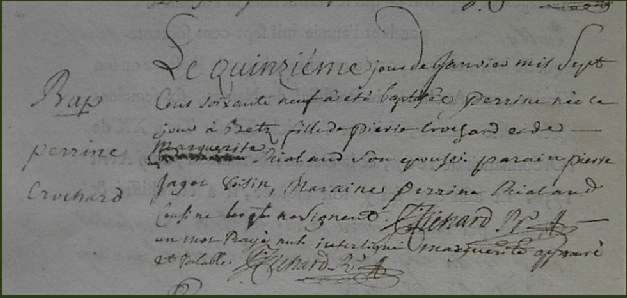 Bap
perrine
Crochard
Le quinziéme jour de Janvier mil Sept
Cens soixante neuf a été baptisée perrine née ce
jour à Betz fille de pierre Crochard et de
Marguerite
Thialand Son epouse parain pierre
Jagot Cosin, Maraine perrine Thialand
Cousine lesqls ne signent.
un mot Rayé nul interligne marguerite aprouvé
et valable.